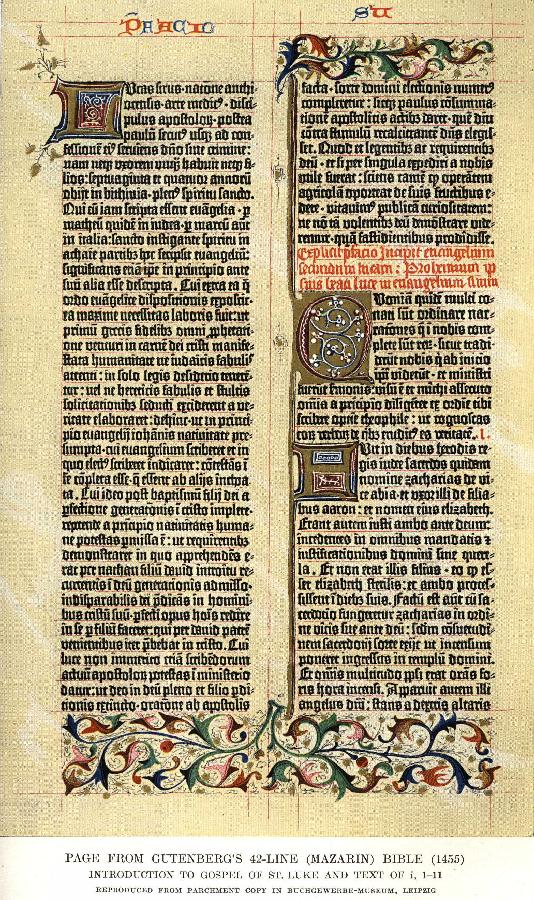 Lucas sirus natione anthi-
ocensis · arte medicꝰ · disci-
pulus apostoloꝝ · postea
paulū secutꝰ usqꝫ ad con-
fessionē eiꝰ serviens dño sine crimine:
nam neqꝫ uxorem unqꝫ habuit neqꝫ fi-
lios: septuaginta et quatuor annorū
obijt in bithinia · plenꝰ spiritu sancto.
Qui cū iam scripta essent evāgelia · ꝑ
matheū quidē in iudea · ꝑ marcū autē
in italia: sancto instigante spiritu in
achaie partibꝰ hoc scripsit evangeliū:
significans etiā ip̄e in principio ante
suū alia esse descripta. Cui extra ea q̄
ordo evāgelice dispositionis exposcit
ea maxime necessitas laboris fuit: ut
primū grecis fidelibꝰ omni ꝓphetati-
one venturi in carnē dei cristi manife-
stata humanitate ne iudaicis fabulis
attenti: in solo legis desiderio tenerē-
tur: vel ne hereticis fabulis et stultis
solicitationibꝰ seducti exciderent a ve-
ritate elaboraret: dehinc · ut in princi-
pio evangelij iohānis nativitate pre-
sumpta · cui evangelium scriberet et in
quo electꝰ scriberet indicaret: cōtestās ī
se cōpleta esse · q̄ essent ab alijs incho-
ta. Cui ideo post baptismū filij dei a
ꝑfectione generationis ī cristo implete ·
repetende a principio nativitatis huma-
ne potestas ꝑmissa ē: ut requirentibꝰ
demonstraret in quo apprehendēs e-
rat per nathan filiū david introitu re-
currentis ī deū generationis admisso ·
indisparabilis dei ꝑdicās in homini-
bus cristū suū · ꝑfecti opus hoīs redire
in se ꝑ filiū faceret: qui per david patrē
venientibus iter ꝑbebat in cristo. Cui
luce non immerito etiā scribēdorum
actuū apostoloꝝ potestas ī ministerio
datur: ut deo in deū pleno et filio ꝓdi-
tionis extincto · oratione ab apostolis
facta · sorte domini electionis numerꝰ
compleretur: sicqꝫ paulus cōsumma-
tionē apostolicis actibꝰ daret · quē diu
cōtra stimulū recalcitrantē dñs elegis-
set. Quod et legentibꝰ ac requirentibꝰ
deū · et si per singula expediri a nobis
utile fuerat: sciens tamē qꝫ operātem
agricolā oporteat de suis fructibus e-
dere · vitavimꝰ publicā curiositatem:
ne nō tā volentibꝰ deū demōstrare vide-
remur · quā fastidientibus prodidisse.
Explicit p̄facio Incipit evangelium
secundum lucam: Prohemium ip̄-
sius beati luce in evangelium suum
Quoniā quidē multi co-
nati sūt ordinare nar-
rationes q̄ ī nobis com-
plete sūt reꝝ · sicut tradi-
derūt nobis q̄ ab inicio
ip̄i viderūt · et ministri
fuerūt sermonis: visū ē et michi assecuto
omnia a principio diligēter ex ordīe tibi
scribere optīe theophile: ut cognoscas
eoꝝ verboꝝ de q̄bꝰ eruditꝰ es veritatē. I.
Fuit in diebus herodis re-
gis iude sacerdos quidam
nomine zacharias de vi-
ce abia · et uxor illi de filia-
bus aaron: et nomen eius elizabeth.
Erant autem iusti ambo ante deum:
incedentes in omnibus mandatis et
iustificationibus domini sine quere-
la. Et non erat illis filius · eo qꝫ es-
set elizabeth sterilis: et ambo proces-
sissent ī diebꝰ suis. Factū est autē cū sa-
cerdotio fungeretur zacharias in ordi-
ne vicis sue ante deū: scd̄m cōsuetudi-
nem sacerdotij sorte exijt ut incensum
poneret ingressus in templū domini.
Et om̄is multitudo pli erat orās fo-
ris hora incensi. Apparuit autem illi
angelus dn̄i: stans a dextris altaris
PAGE FROM GUTENBERG'S 42-LINE (MAZARIN) BIBLE (1455)
INTRODUCTION TO GOSPEL OF ST. LUKE AND TEXT OF i, 1–11
REPRODUCED FROM PARCHMENT COPY IN BUCHGEWERBE-MUSEUM, LEIPZIG